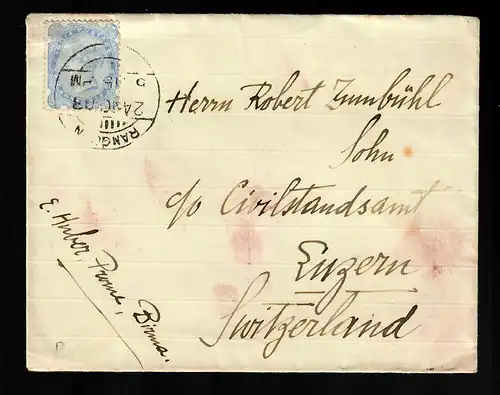 RANGO N
Herrn Robert Zumbühl
Sohn
c/o Civilstandsamt
Luzern
Switzerland
E. Huber, Prome, Birma.